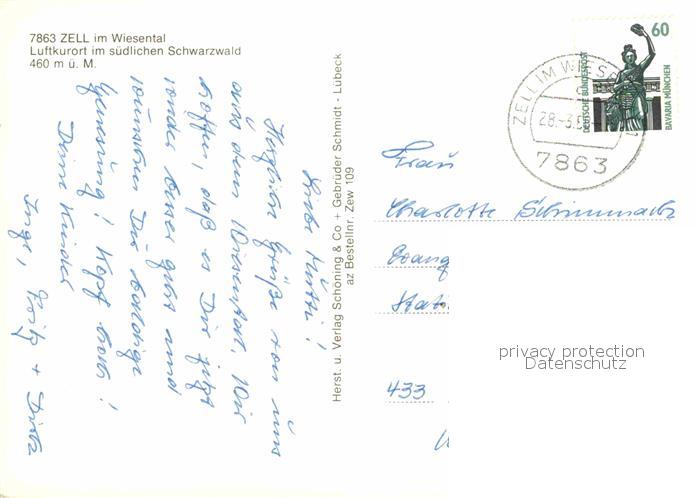 7863 ZELL im Wiesental
Luftkurort im südlichen Schwarzwald
460 m ü. M.
Liebe Mutti!
Herzliche Grüße von uns
aus dem Wiesental. Wir
hoffen, daß es Dir jetzt
wieder besser geht und
wünschen Dir baldige
Genesung! Kopf hoch!
Deine Kinder
Inge, Fritz +
Herst. u. Verlag Schöning & Co + Gebrüder Schmidt - Lübeck
az Bestellnr. Zew 109
60
DEUTSCHE BUNDESPOST
BAVARIA MÜNCHEN
ZELL IM WIESE
28.-3.
7863
Frau
Charlotte
Evang
Stati
433
privacy protection
Datenschutz